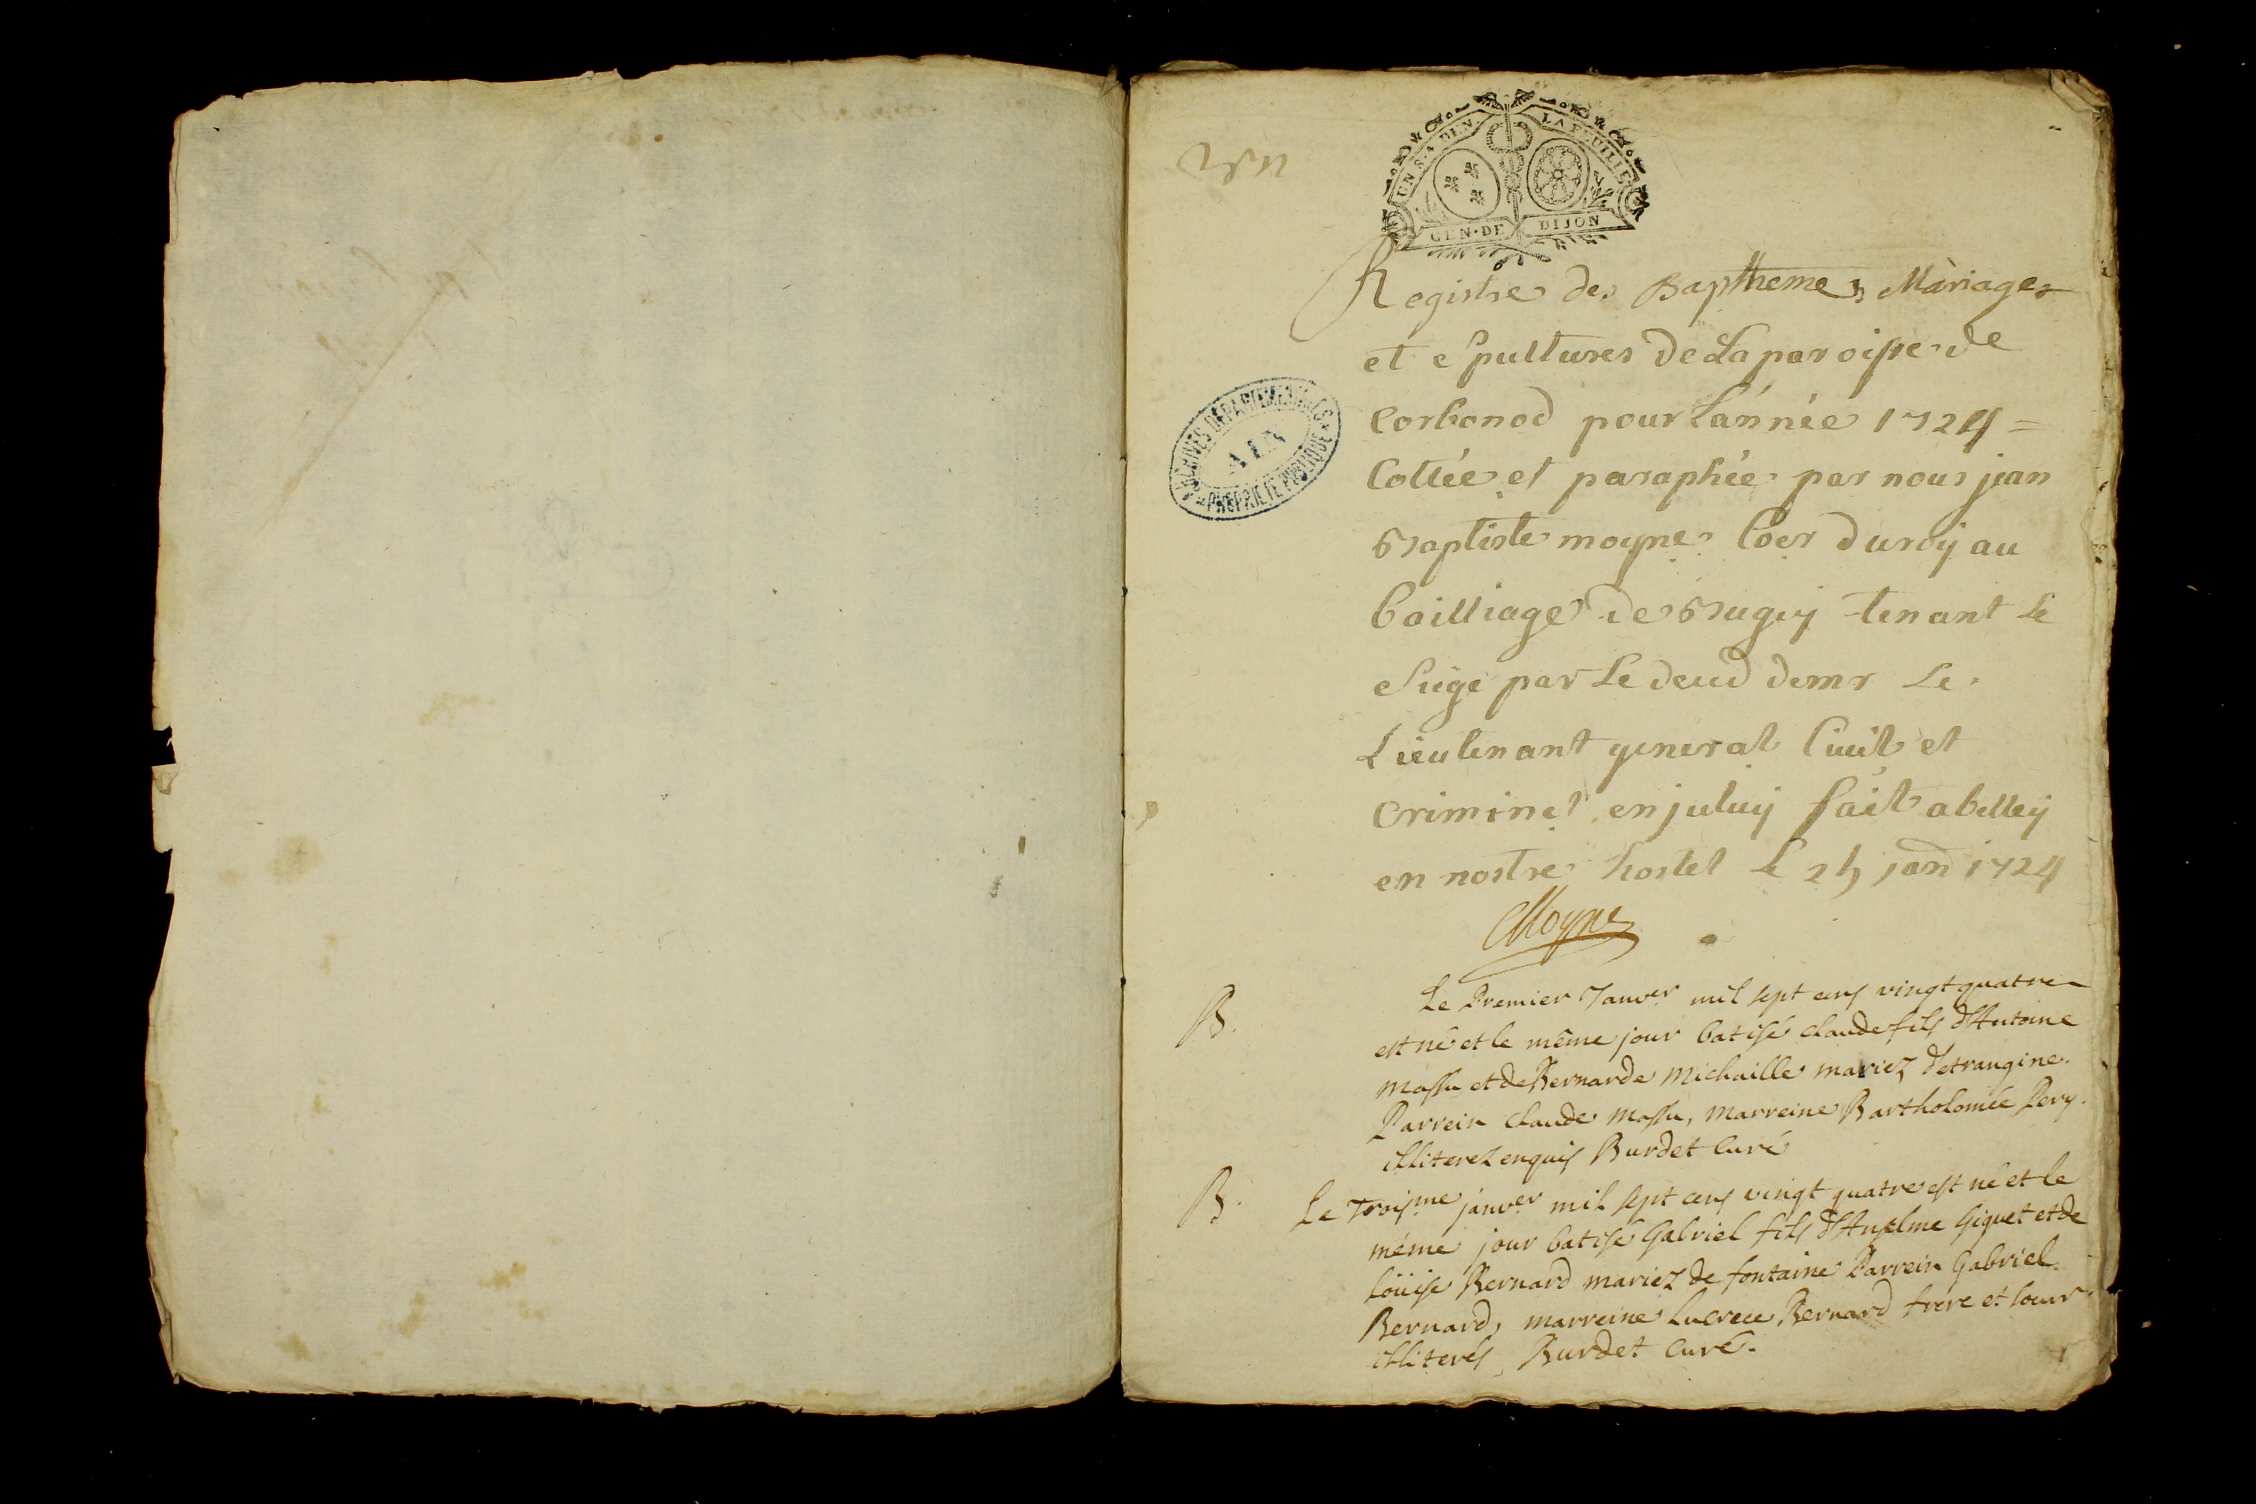 UN S. A DEN. LA FEUILLE
GEN. DE DIJON
Registre des Bapthemes Mariages
et Spultures de La paroisse de
Corbonod pour L'année 1724 =
Cottée et paraphée par nous jean
Baptiste moyne Coer du roy au
bailliage de Bugey tenant Le
Siege par Le deud de mr Le
Lieutenant general Civil et
Criminel en jceluy fait a belley
en nostre hostel Le 24 janv 1724
Moyne
ARCHIVES DÉPARTEMENTALES
AIN
PROPRIÉTÉ PUBLIQUE
B.
Le Premier Janver mil sept cens vingt quatre
est né et le même jour batisé Claude fils d'Antoine
Massu et de Bernarde Michaille mariez d'etrangine.
Parrein Claude Massu, marreine Bartholomée Pery.
illiterez enquis Burdet Curé
B.
Le Troisme janver mil sept cens vingt quatre est né et le
même jour batisé Gabriel fils d'Anselme Giguet et de
Loüise Bernard mariez de fontaine Parrein Gabriel
Bernard, marreine Lucrece Bernard frere et soeur.
illiterés Burdet Curé.